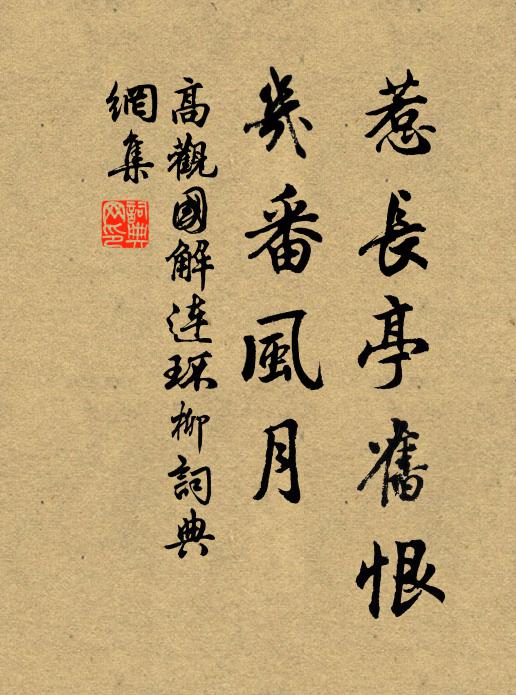 惹長亭舊恨
幾番風月
高觀國解連環柳詞典
網集
詞典
网印